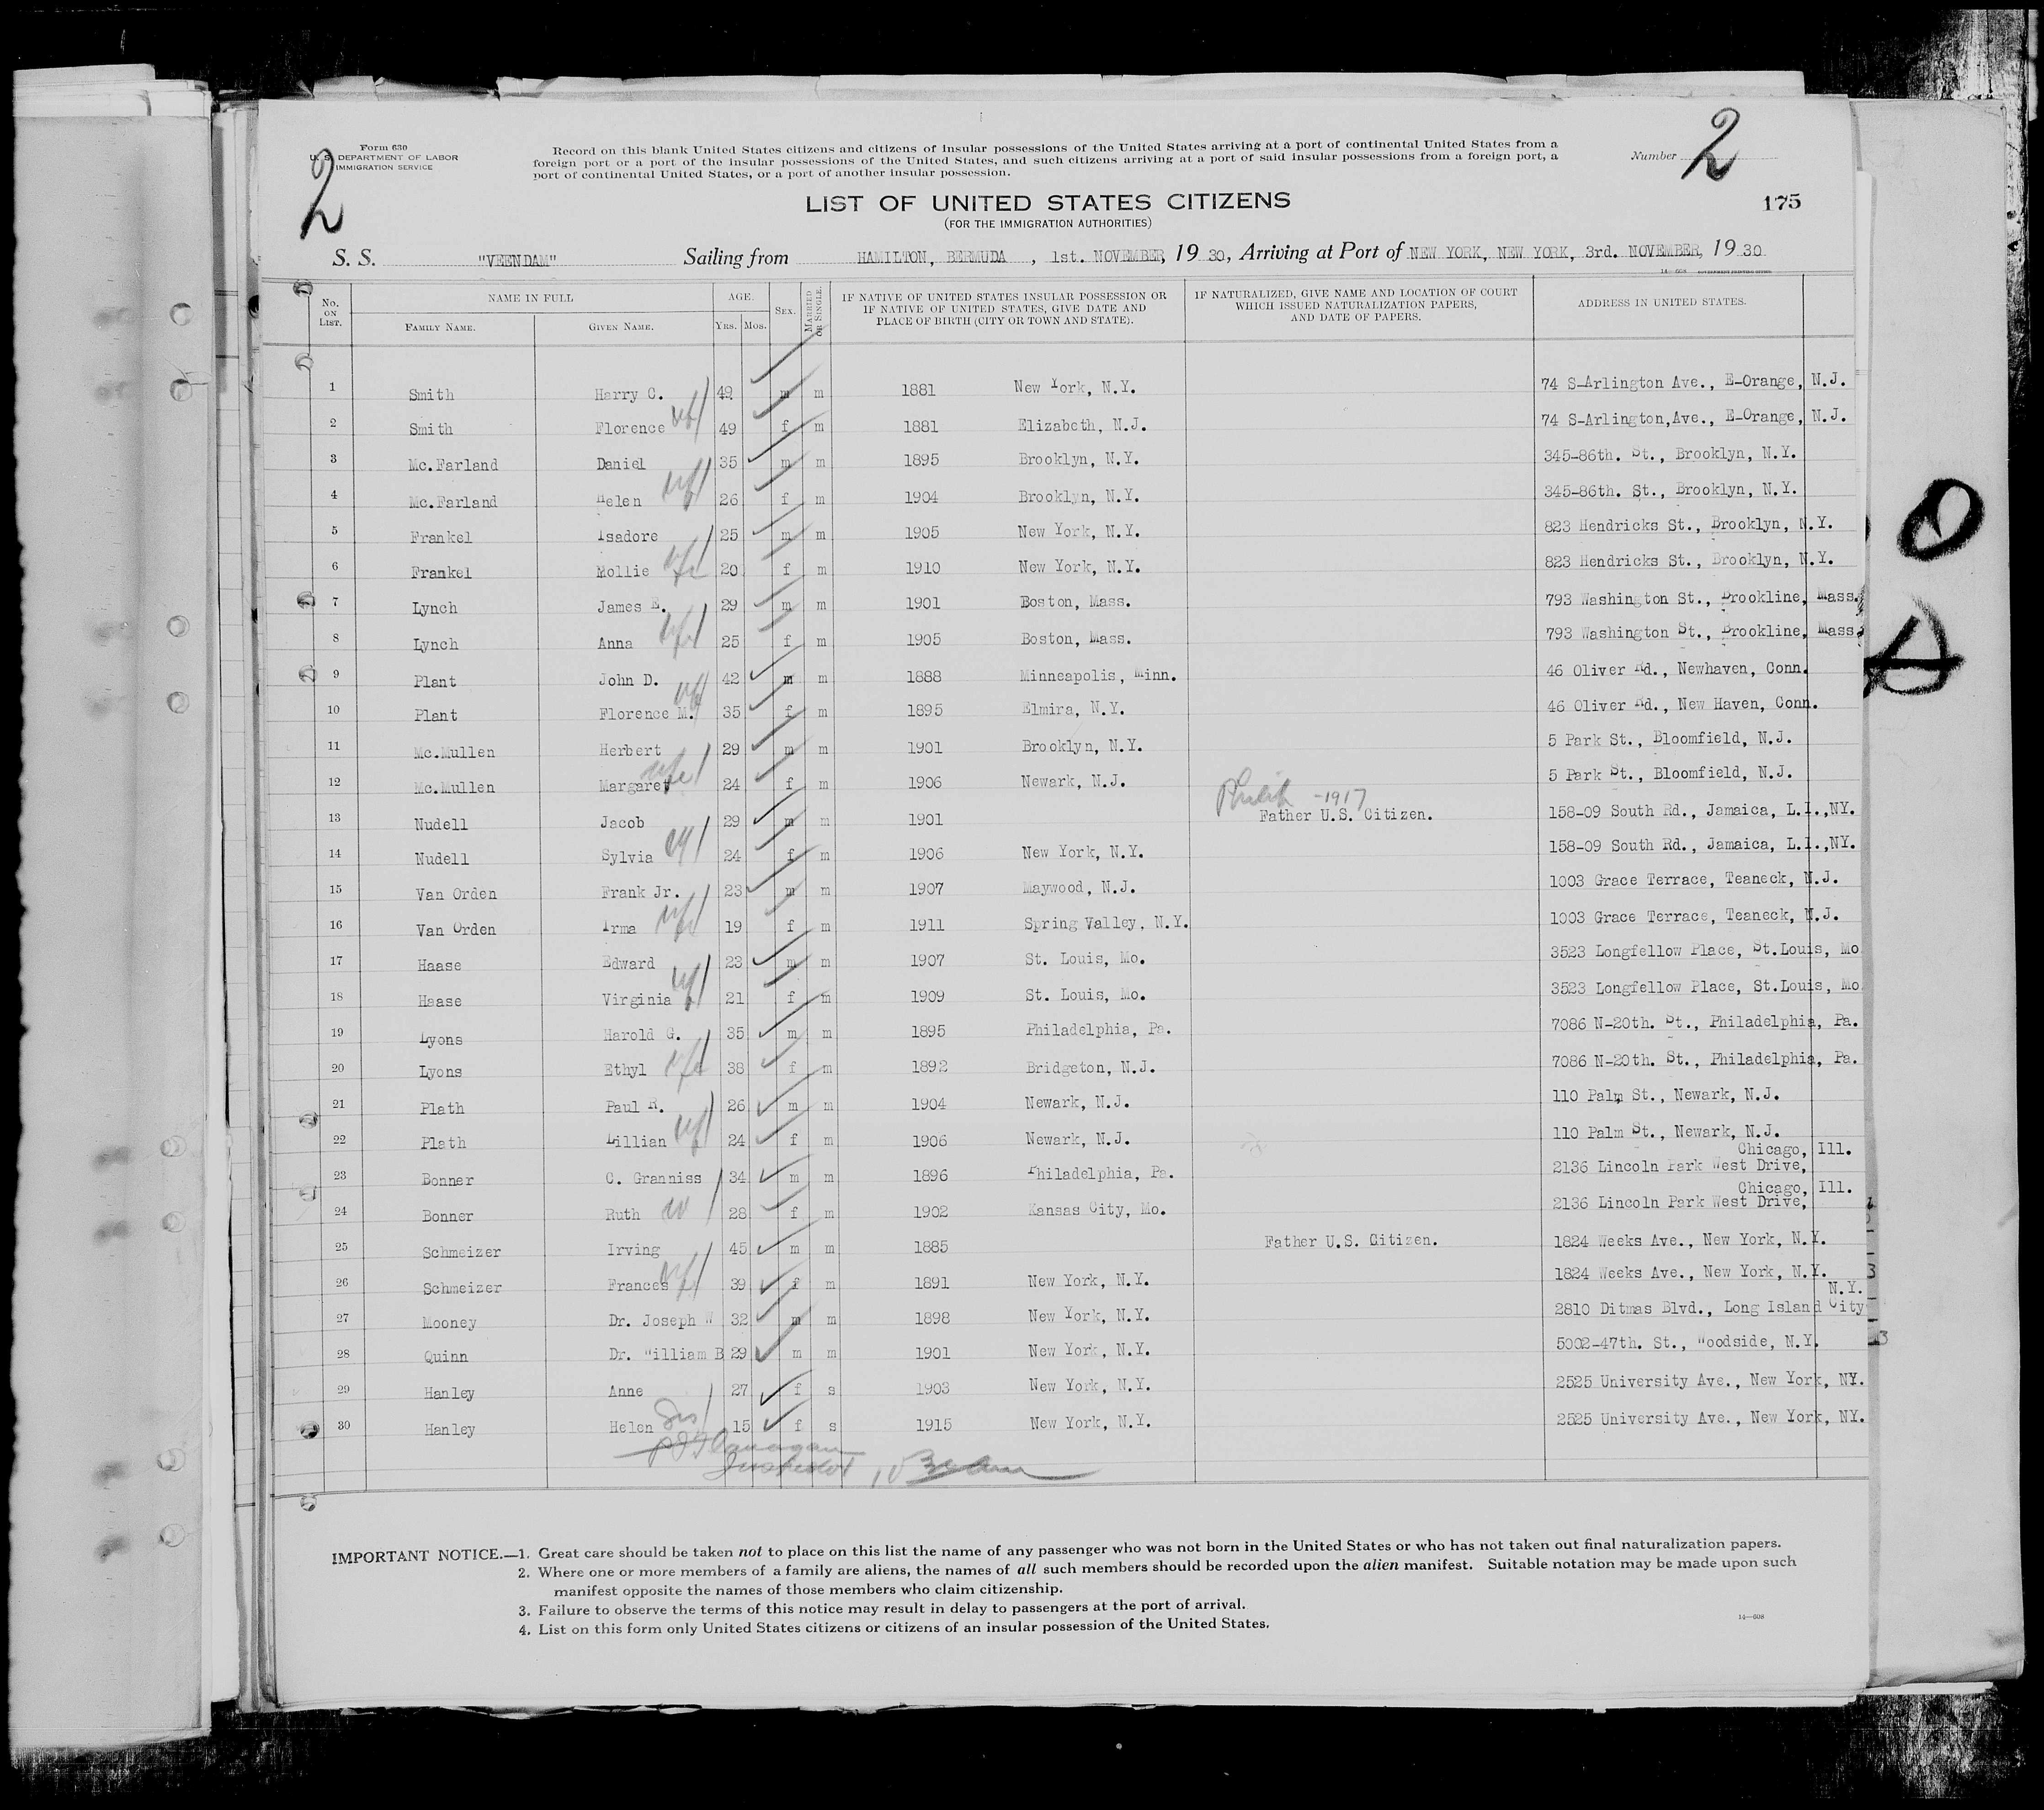 2
Form 630
U. S. DEPARTMENT OF LABOR
IMMIGRATION SERVICE
Record on this blank United States citizens and citizens of insular possessions of the United States arriving at a port of continental United States from a
foreign port or a port of the insular possessions of the United States, and such citizens arriving at a port of said insular possessions from a foreign port, a
port of continental United States, or a port of another insular possession.
Number 2
LIST OF UNITED STATES CITIZENS
(FOR THE IMMIGRATION AUTHORITIES)
175
S. S. "VEENDAM" Sailing from HAMILTON, BERMUDA , 1st. NOVEMBER, 19 30, Arriving at Port of NEW YORK, NEW YORK, 3rd. NOVEMBER, 19 30
14—608 GOVERNMENT PRINTING OFFICE
No. ON LIST. NAME IN FULL FAMILY NAME. GIVEN NAME. AGE. YRS. MOS. SEX. MARRIED OR SINGLE. IF NATIVE OF UNITED STATES INSULAR POSSESSION OR IF NATIVE OF UNITED STATES, GIVE DATE AND PLACE OF BIRTH (CITY OR TOWN AND STATE). IF NATURALIZED, GIVE NAME AND LOCATION OF COURT WHICH ISSUED NATURALIZATION PAPERS, AND DATE OF PAPERS. ADDRESS IN UNITED STATES.
1 Smith Harry C. 49 m m 1881 New York, N.Y. 74 S-Arlington Ave., E-Orange, N.J.
2 Smith Florence wf 49 f m 1881 Elizabeth, N.J. 74 S-Arlington,Ave., E-Orange, N.J.
3 Mc.Farland Daniel 35 m m 1895 Brooklyn, N.Y. 345-86th. St., Brooklyn, N.Y.
4 Mc.Farland Helen wf 26 f m 1904 Brooklyn, N.Y. 345-86th. St., Brooklyn, N.Y.
5 Frankel Isadore 25 m m 1905 New York, N.Y. 823 Hendricks St., Brooklyn, N.Y.
6 Frankel Mollie wfe 20 f m 1910 New York, N.Y. 823 Hendricks St., Brooklyn, N.Y.
7 Lynch James E. 29 m m 1901 Boston, Mass. 793 Washington St., Brookline, Mass.
8 Lynch Anna wf 25 f m 1905 Boston, Mass. 793 Washington St., Brookline, Mass.
9 Plant John D. 42 m m 1888 Minneapolis, Minn. 46 Oliver Rd., Newhaven, Conn.
10 Plant Florence M. wf 35 f m 1895 Elmira, N.Y. 46 Oliver Rd., New Haven, Conn.
11 Mc.Mullen Herbert 29 m m 1901 Brooklyn, N.Y. 5 Park St., Bloomfield, N.J.
12 Mc.Mullen Margaret wfe 24 f m 1906 Newark, N.J. 5 Park St., Bloomfield, N.J.
Philip -1917
13 Nudell Jacob 29 m m 1901 Father U.S. Citizen. 158-09 South Rd., Jamaica, L.I.,NY.
14 Nudell Sylvia wf 24 f m 1906 New York, N.Y. 158-09 South Rd., Jamaica, L.I.,NY.
15 Van Orden Frank Jr. 23 m m 1907 Maywood, N.J. 1003 Grace Terrace, Teaneck, N.J.
16 Van Orden Irma wfe 19 f m 1911 Spring Valley, N.Y. 1003 Grace Terrace, Teaneck, N.J.
17 Haase Edward 23 m m 1907 St. Louis, Mo. 3523 Longfellow Place, St.Louis, Mo
18 Haase Virginia wf 21 f m 1909 St. Louis, Mo. 3523 Longfellow Place, St.Louis, Mo
19 Lyons Harold G. 35 m m 1895 Philadelphia, Pa. 7086 N-20th. St., Philadelphia, Pa.
20 Lyons Ethyl wfe 38 f m 1892 Bridgeton, N.J. 7086 N-20th. St., Philadelphia, Pa.
21 Plath Paul R. 26 m m 1904 Newark, N.J. 110 Palm St., Newark, N.J.
22 Plath Lillian wf 24 f m 1906 Newark, N.J. 110 Palm St., Newark, N.J.
Chicago, Ill.
23 Bonner C. Granniss 34 m m 1896 Philadelphia, Pa. 2136 Lincoln Park West Drive,
Chicago, Ill.
24 Bonner Ruth w 28 f m 1902 Kansas City, Mo. 2136 Lincoln Park West Drive,
25 Schmeizer Irving 45 m m 1885 Father U.S. Citizen. 1824 Weeks Ave., New York, N.Y.
26 Schmeizer Frances wf 39 f m 1891 New York, N.Y. 1824 Weeks Ave., New York, N.Y.
N.Y.
27 Mooney Dr. Joseph W 32 m m 1898 New York, N.Y. 2810 Ditmas Blvd., Long Island City
28 Quinn Dr. William B 29 m m 1901 New York, N.Y. 5002-47th. St., Woodside, N.Y.
29 Hanley Anne 27 f s 1903 New York, N.Y. 2525 University Ave., New York, NY.
30 Hanley Helen Sis 15 f s 1915 New York, N.Y. 2525 University Ave., New York, NY.
Inspector
IMPORTANT NOTICE.—1. Great care should be taken not to place on this list the name of any passenger who was not born in the United States or who has not taken out final naturalization papers.
2. Where one or more members of a family are aliens, the names of all such members should be recorded upon the alien manifest. Suitable notation may be made upon such
manifest opposite the names of those members who claim citizenship.
3. Failure to observe the terms of this notice may result in delay to passengers at the port of arrival.
4. List on this form only United States citizens or citizens of an insular possession of the United States.
14—608